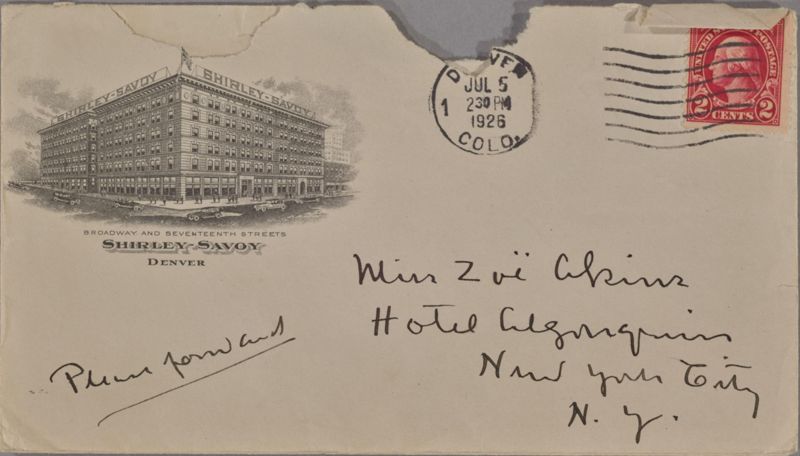 SHIRLEY-SAVOY SHIRLEY-SAVOY
BROADWAY AND SEVENTEENTH STREETS
SHIRLEY-SAVOY
DENVER
DENVER
JUL 5
1 2 30 PM
1926
COLO.
UNITED STATES POSTAGE
2 CENTS 2
Miss Zoë Akins
Hotel Algonquin
New York City
N. Y.
Please forward